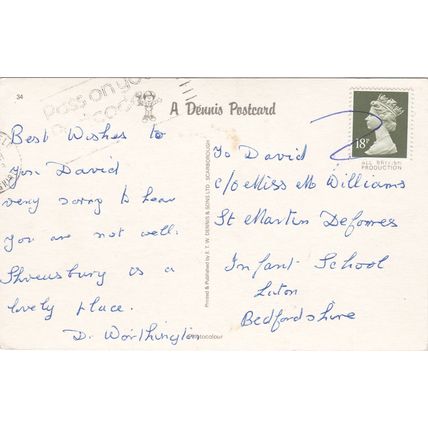 34
Pass on your
postcode
A Dennis Postcard
18P
ALL BRITISH
PRODUCTION
Best Wishes to
you David
very sorry to hear
you are not well.
Shrewsbury is a
lovely place.
D. Worthington
Printed & Published by E. T. W. DENNIS & SONS LTD., SCARBOROUGH
Photocolour
To David
c/o Miss M Williams
St Martin Deformes
Infant School
Luton
Bedfordshire